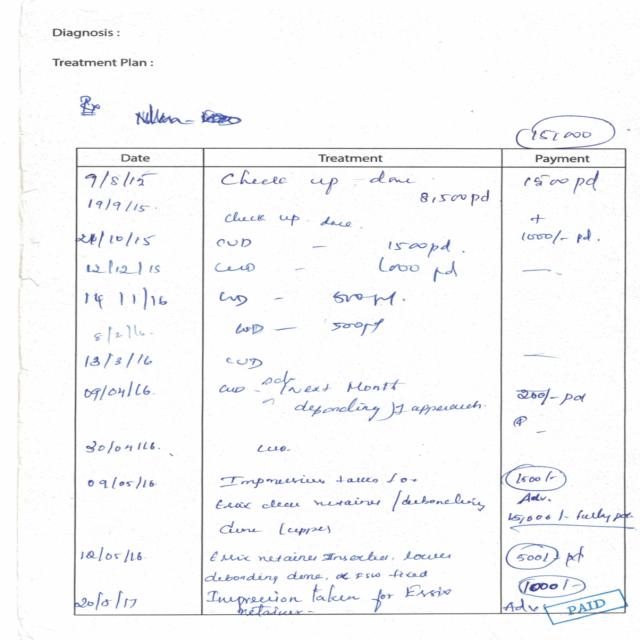 Diagnosis :
Treatment Plan :
151,000
Date Treatment Payment
9/8/15 Check up done 1500 pd
8,500 pd
19/9/15. Check up done +
1000/- pd.
21/10/15 CUD - 1500 pd.
12/12/15 CUD - 1,000 pd —
14 11/16 CUD - 500 pd.
8/2/16. CUD — 500 pd
13/3/16 CUD —
09/04/16. CUD - Next Month 200/- pd
depending
30/04/16. CUD.
09/05/16 Impression taken for 1500/-
Essix clear retainer / debonding Adv.
done (upper 15,000/- fully pd.
12/05/16. Essix retainer Inserted. lower 500/- pd
debonding done, fixed
20/5/17 Impression taken for Essix 1000/-
retainer - Adv PAID